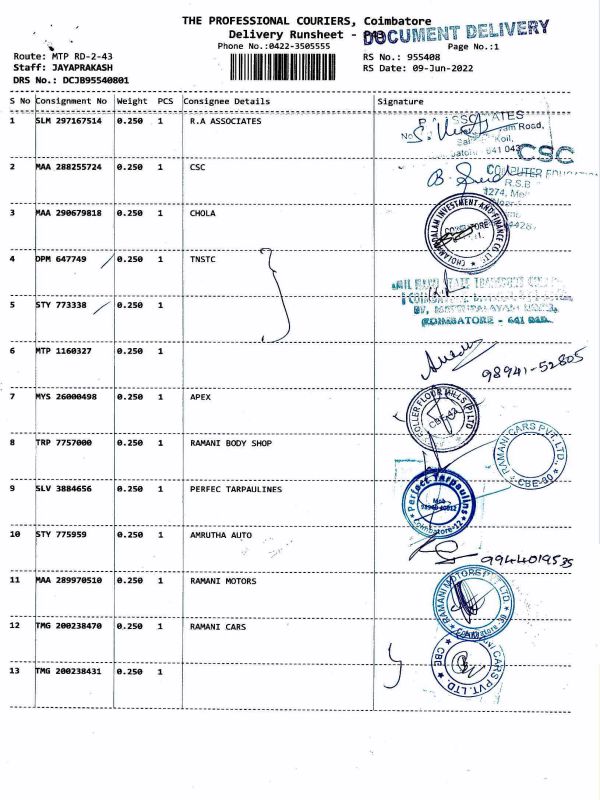 THE PROFESSIONAL COURIERS, Coimbatore
Delivery Runsheet -
DOCUMENT DELIVERY
Phone No.:0422-3505555
Page No.:1
Route: MTP RD-2-43
RS No.: 955408
Staff: JAYAPRAKASH
RS Date: 09-Jun-2022
DRS No.: DCJB95540801
S No Consignment No Weight PCS Consignee Details Signature
1 SLM 297167514 0.250 1 R.A ASSOCIATES
2 MAA 288255724 0.250 1 CSC
CSC
COMPUTER
R.S.B
1274,
3 MAA 290679818 0.250 1 CHOLA
CHOLAMANDALAM INVESTMENT AND FINANCE CO. LTD.
4 DPM 647749 0.250 1 TNSTC
5 STY 773338 0.250 1
COIMBATORE - 641
6 MTP 1160327 0.250 1
98941-52805
7 MYS 26000498 0.250 1 APEX
ROLLER FLOUR MILLS (P) LTD
8 TRP 7757000 0.250 1 RAMANI BODY SHOP
RAMANI CARS PVT. LTD.
CBE-90
9 SLV 3884656 0.250 1 PERFEC TARPAULINES
Perfect Tarpaulins
Mob
Coimbatore-12
10 STY 775959 0.250 1 AMRUTHA AUTO
9944019535
11 MAA 289970510 0.250 1 RAMANI MOTORS
RAMANI MOTORS PVT. LTD.
12 TMG 200238470 0.250 1 RAMANI CARS
13 TMG 200238431 0.250 1
RAMANI CARS PVT. LTD.
CBE